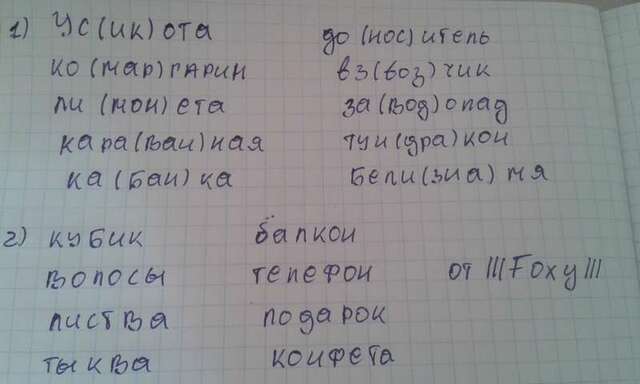 1) Ус(ик)ота до(нос)итель
ко(мар)гарин вз(воз)чик
ли(мон)ета за(вод)опад
кара(ван)ная тун(дра)кон
ка(бан)ка бели(зна)мя
2) кубик балкон
волосы телефон от |||Foxy|||
листва подарок
тыква конфета